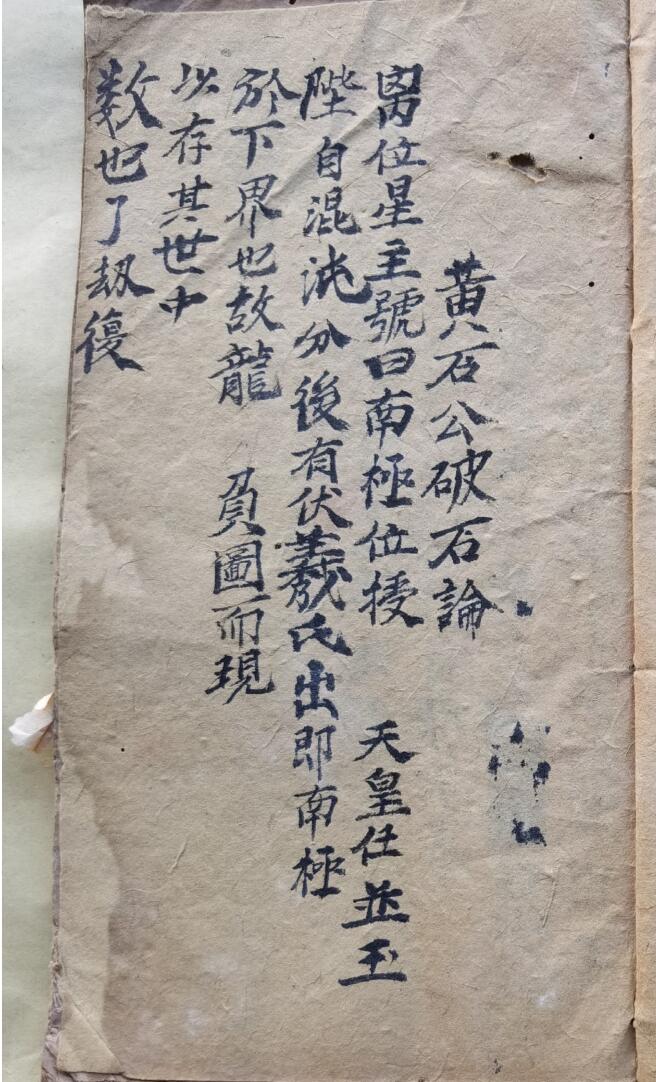 黄石公破石論
离位星主號曰南極位授 天皇任並玉
陛自混沌分後有伏羲氏出即南極
於下界也故龍 負圖而現
以存其世中
数也了劫復